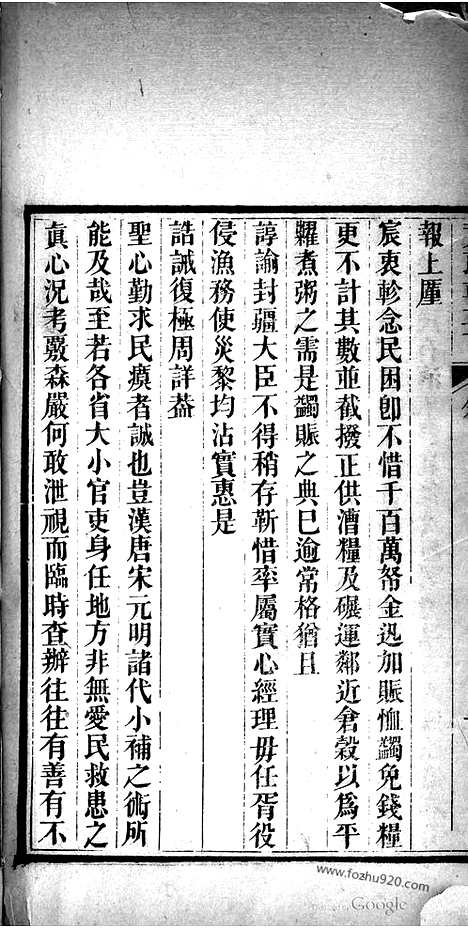 報上厪
宸衷軫念民困卽不惜千百萬帑金迅加賑恤蠲免錢糧
更不計其數並截撥正供漕糧及碾運鄰近倉穀以爲平
糶煮粥之需是蠲賑之典已逾常格猶且
諄諭封疆大臣不得稍存靳惜率屬實心經理毋任胥役
侵漁務使災黎均沾實惠是
誥誡復極周詳葢
聖心勤求民瘼者誠也豈漢唐宋元明諸代小補之術所
能及哉至若各省大小官吏身任地方非無愛民救患之
眞心況考覈森嚴何敢泄視而臨時查辦往往有善有不
www.fozhu920.com
Google